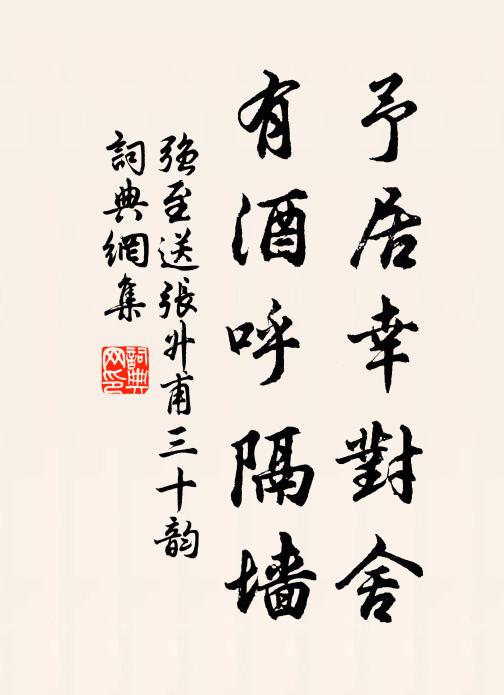 予居幸對舍
有酒呼隔墙
強至送張升甫三十韵
詞典網集
詞典网印